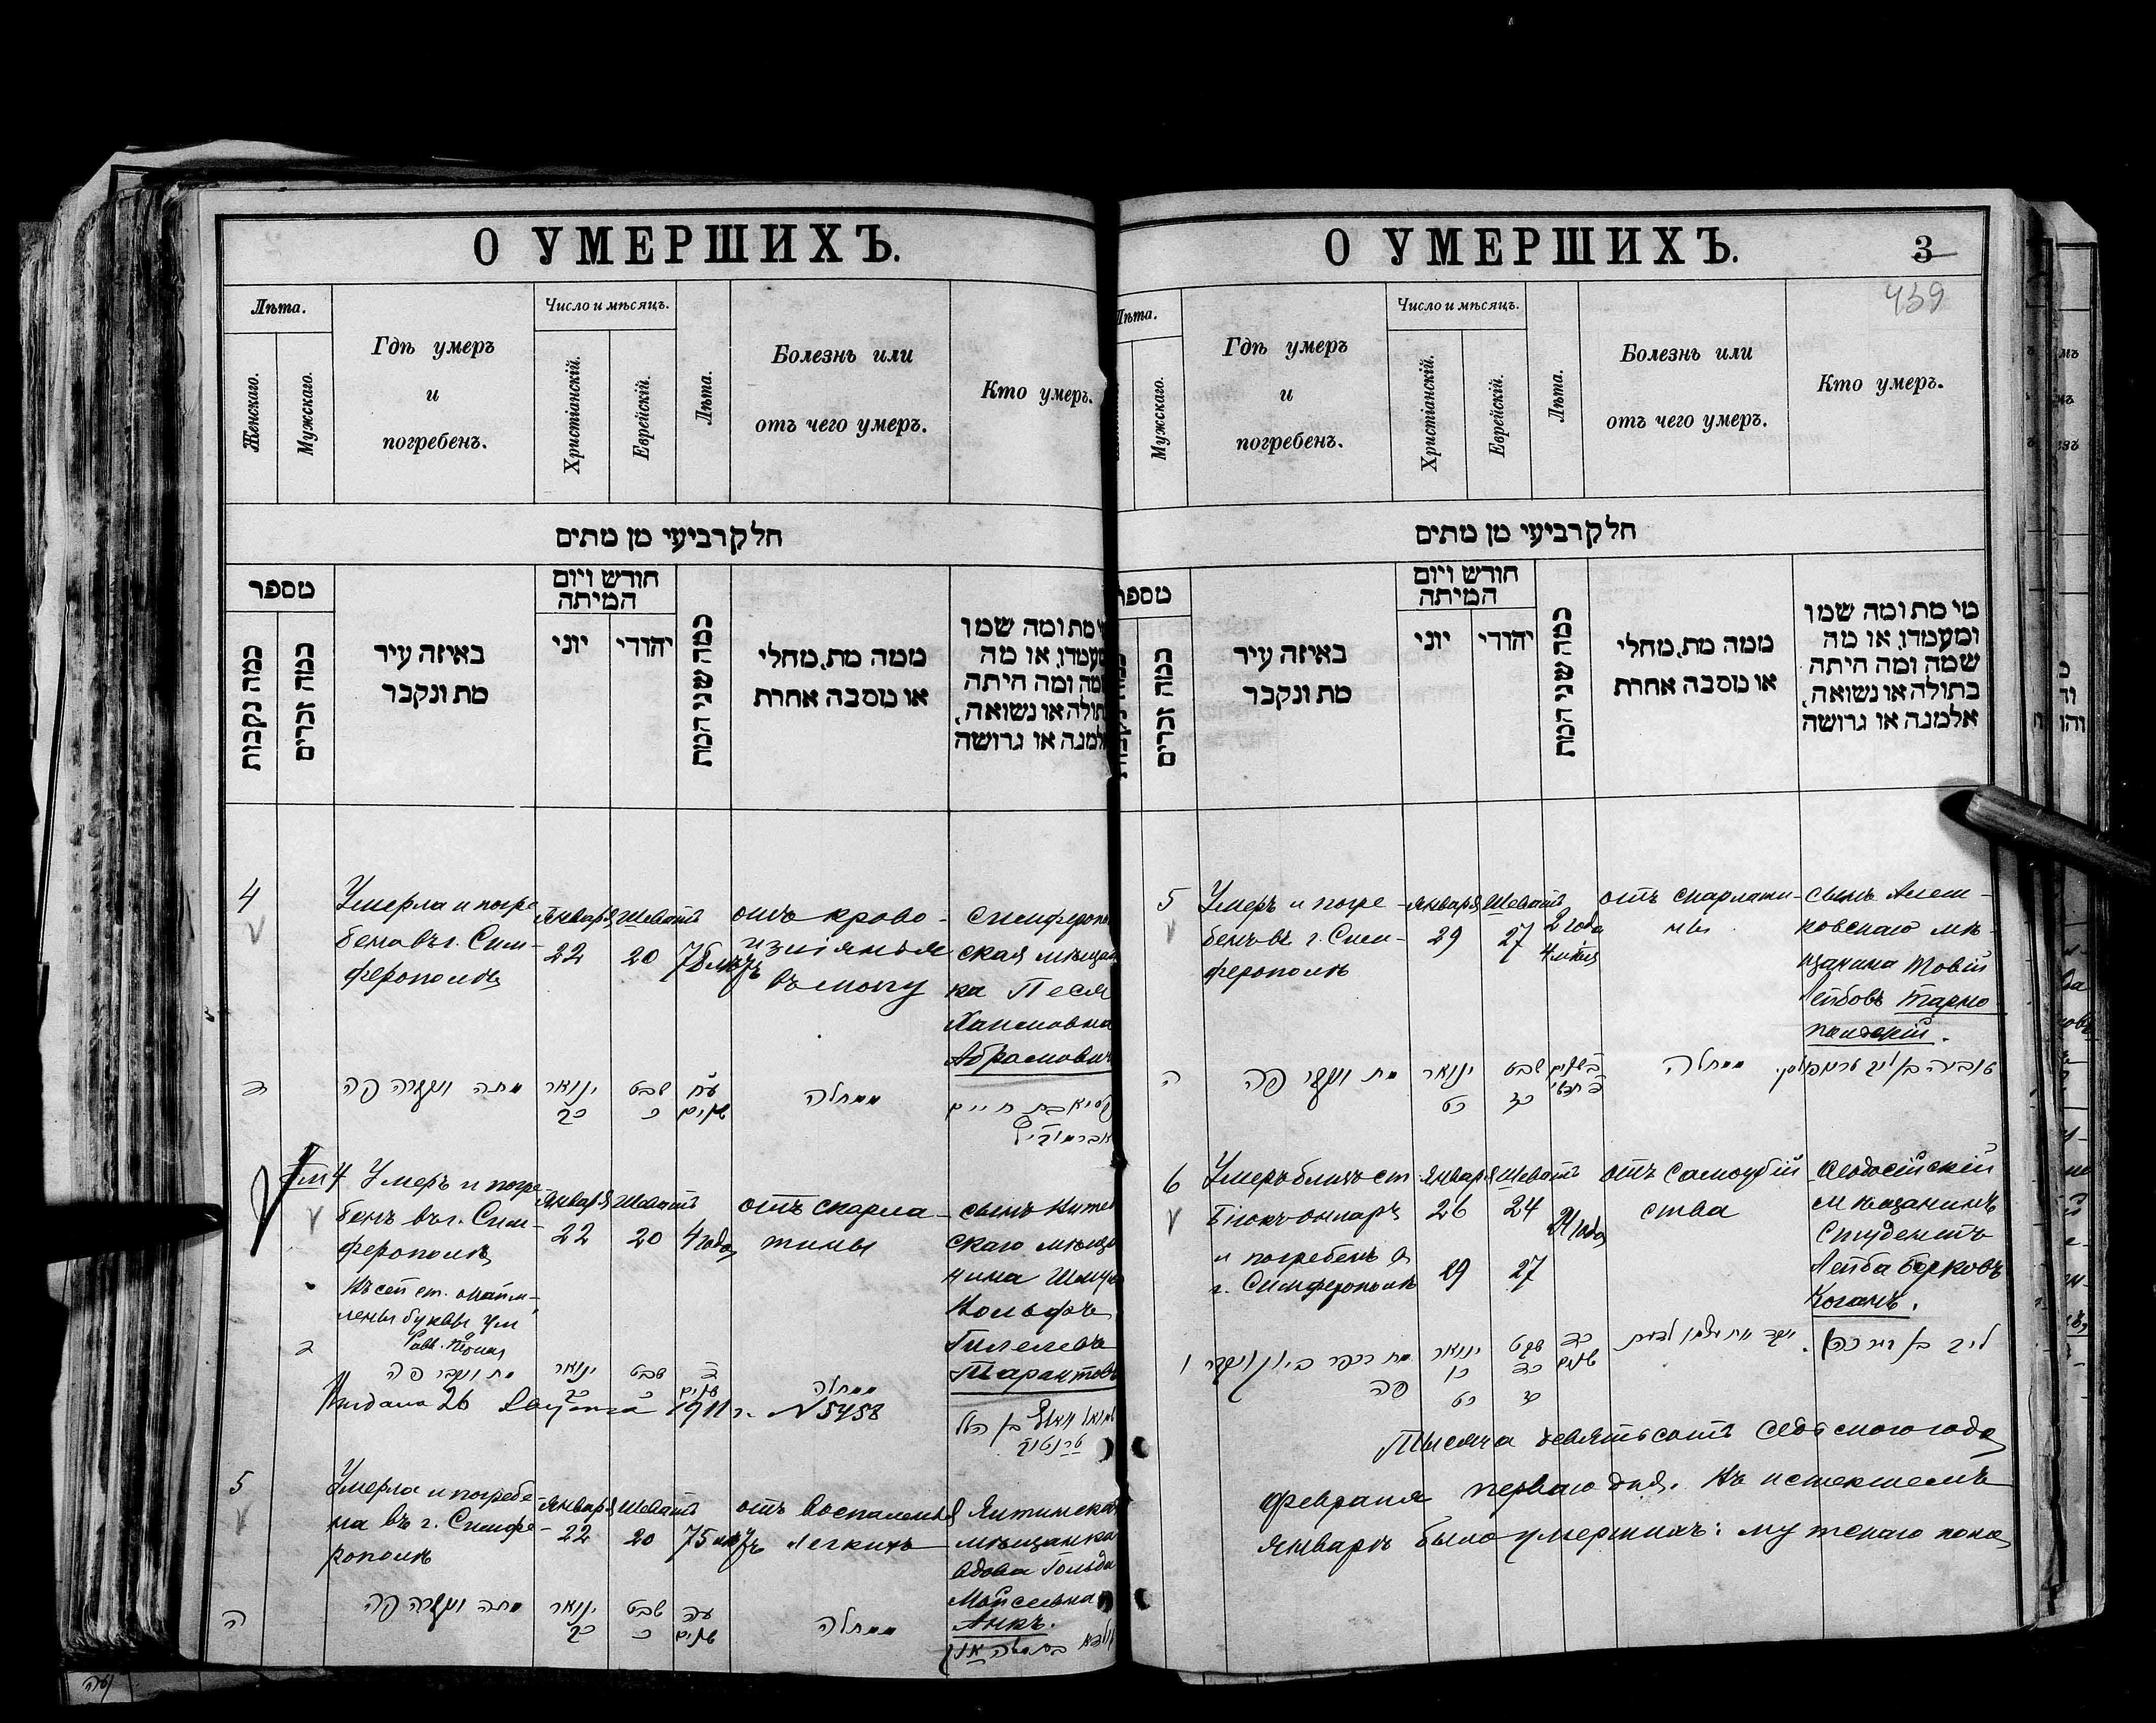 О УМЕРШИХЪ.
Лѣта.
Женскаго.
Мужскаго.
Гдѣ умеръ
и
погребенъ.
Число и мѣсяцъ.
Христіанскій.
Еврейскій.
Лѣта.
Болезнь или
отъ чего умеръ.
Кто умеръ.
חלק רביעי מן מתים
מספר
כמה נקבות
כמה זכרים
באיזה עיר
מת ונקבר
חודש ויום
המיתה
יוני
יהודי
כמה שני המת
ממה מת, מחלי
או מסבה אחרת
מי מת ומה שמו
ומעמדו, או מה
שמה ומה היתה
בתולה או נשואה,
אלמנה או גרושה
4
Умерла и погре
бена въ г. Сим-
ферополѣ
Января
22
Шеватъ
20
78 лѣтъ
отъ крово-
изліянія
въ мозгу
Симферополь
ская мѣщан
ка Песя
Хаимовна
Абрамович
ד
מתה ונקברה פה
ינואר
כב
שבט
כ
עח
שנים
ממחלה
בת חיים
ум 4
Умеръ и погре
бенъ въ г. Сим-
ферополѣ
Января
22
Шеватъ
20
4 года
отъ скарла-
тины
сынъ
скаго мѣща
нина
Вольфъ
Гилелевъ
Тарантовъ
Въ сей ст.
буквы ум
ד
מת ונקבר פה
ינואר
כב
שבט
כ
ד
שנים
ממחלה
Выдана 26 Августа 1911 г. № 5458
בן הלל
5
Умерла и погребе
на въ г. Симфе-
рополѣ
Января
22
Шеватъ
20
75 лѣтъ
отъ воспаленія
легкихъ
Ялтинская
мѣщанка
вдова Гольда
Мойсеевна
Анкъ.
ה
מתה ונקברה פה
ינואר
כב
שבט
כ
עה
שנים
ממחלה
О УМЕРШИХЪ.
3
439
Лѣта.
Мужскаго.
Гдѣ умеръ
и
погребенъ.
Число и мѣсяцъ.
Христіанскій.
Еврейскій.
Лѣта.
Болезнь или
отъ чего умеръ.
Кто умеръ.
חלק רביעי מן מתים
מספר
כמה זכרים
באיזה עיר
מת ונקבר
חודש ויום
המיתה
יוני
יהודי
כמה שני המת
ממה מת, מחלי
או מסבה אחרת
מי מת ומה שמו
ומעמדו, או מה
שמה ומה היתה
בתולה או נשואה,
אלמנה או גרושה
5
Умеръ и погре-
бенъ въ г. Сим-
ферополѣ
Января
29
Шеватъ
27
2 года
4 мѣсяц
отъ скарлати-
ны
сынъ Алеш-
ковскаго мѣ-
щанина Товій
Лейбовъ Тарно
польскій.
ה
מת ונקבר פה
ינואר
כט
שבט
כז
ב שנים
ממחלה
טוביה בן ליב
6
Умеръ близъ ст.
Біюкъ-онларъ
и погребенъ въ
г. Симферополѣ
Января
26
29
Шеватъ
24
27
21 года
отъ самоубій
ства
Ѳеодосійскій
мѣщанинъ
Студентъ
Лейба Берковъ
Коганъ.
ו
פה
ינואר
כו
כט
שבט
כד
כז
שנים
ליב בן
Тысяча девятьсотъ седьмого года
февраля перваго дня. Въ истекшемъ
январѣ было умершихъ: мужскаго пола